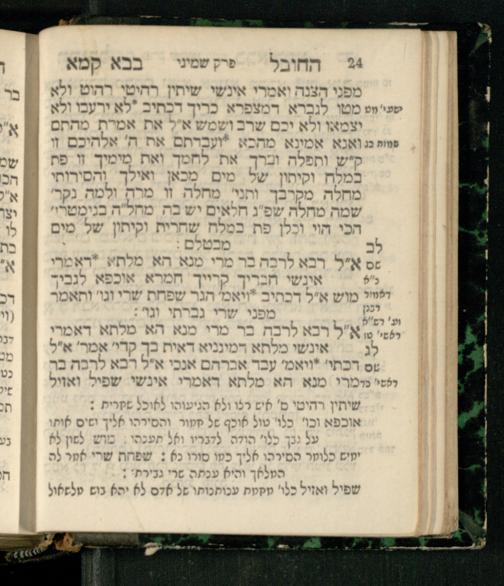 24 החובל פרק שמיני בבא קמא
מפני הצנה ואמרי אינשי שיתין רהיטי רהוט ולא
מטו לגברא דמצפרא כריך דכתיב *לא ירעבו ולא
ישעי' מט
יצמאו ולא יכם שרב ושמש א"ל את אמרת מהתם
ואנא אמינא מהכא *ועבדתם את ה' אלהיכם זו
שמות כג
ק"ש ותפלה וברך את לחמך ואת מימיך זו פת
במלח וקיתון של מים מכאן ואילך והסירותי
מחלה מקרבך ותני' מחלה זו מרה ולמה נקר'
שמה מחלה שפ"ג חלאים יש בה מחל"ה בגימטרי'
הכי הוי וכלן פת במלח שחרית וקיתון של מים
מבטלם :
לב
א"ל רבא לרבה בר מרי מנא הא מלתא *דאמרי
שם
אינשי חבריך קרייך חמרא אוכפא לגביך
מוש א"ל דכתיב *ויאמ' הגר שפחת שרי וגו' ותאמר
מפני שרי גברתי וגו' :
א"ל רבא לרבה בר מרי מנא הא מלתא דאמרי
אינשי מלתא דמיגניא דאית בך קדי' אמר' א"ל
לג
דכתי' *ויאמ' עבד אברהם אנכי א"ל רבא לרבה בר
שם
מרי מנא הא מלתא דאמרי אינשי שפיל ואזיל
שיתין רהיטי ס' איש רלו ולא הגיעוהו לאוכל שחרית :
אוכפא וכו' כלו' טול אוכף של חמור והסירהו אליך ושים אותו
על גבך כלו' הודה לדבריו ואל תענהו מוש לשון לא
ימיש כלומר הסירהו אליך כמו סורו נא : שפחת שרי אמר לה
המלאך והיא ענתה שרי גבירתי :